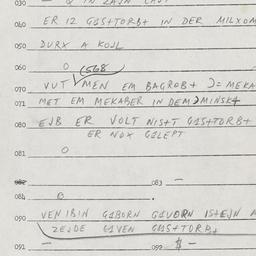 030
040 ER IZ G1S+TORB+ IN DER MILXOM
050 DURX A KOJL
060 O (568
070 VUT MEN EM BAGROB+ )= MEKA
071 MET EM MEKABER IN DEM MINSK+
080 EJB ER VOLT NIS+T G1S+TORB+
ER NOX G1LEPT
081 O
082 083 —
084 O .
090 VEN IBIN GABORN GAVORN IS+EJN
ZEJDE GAVEN GAS+TORB+
091 — 099 $ —